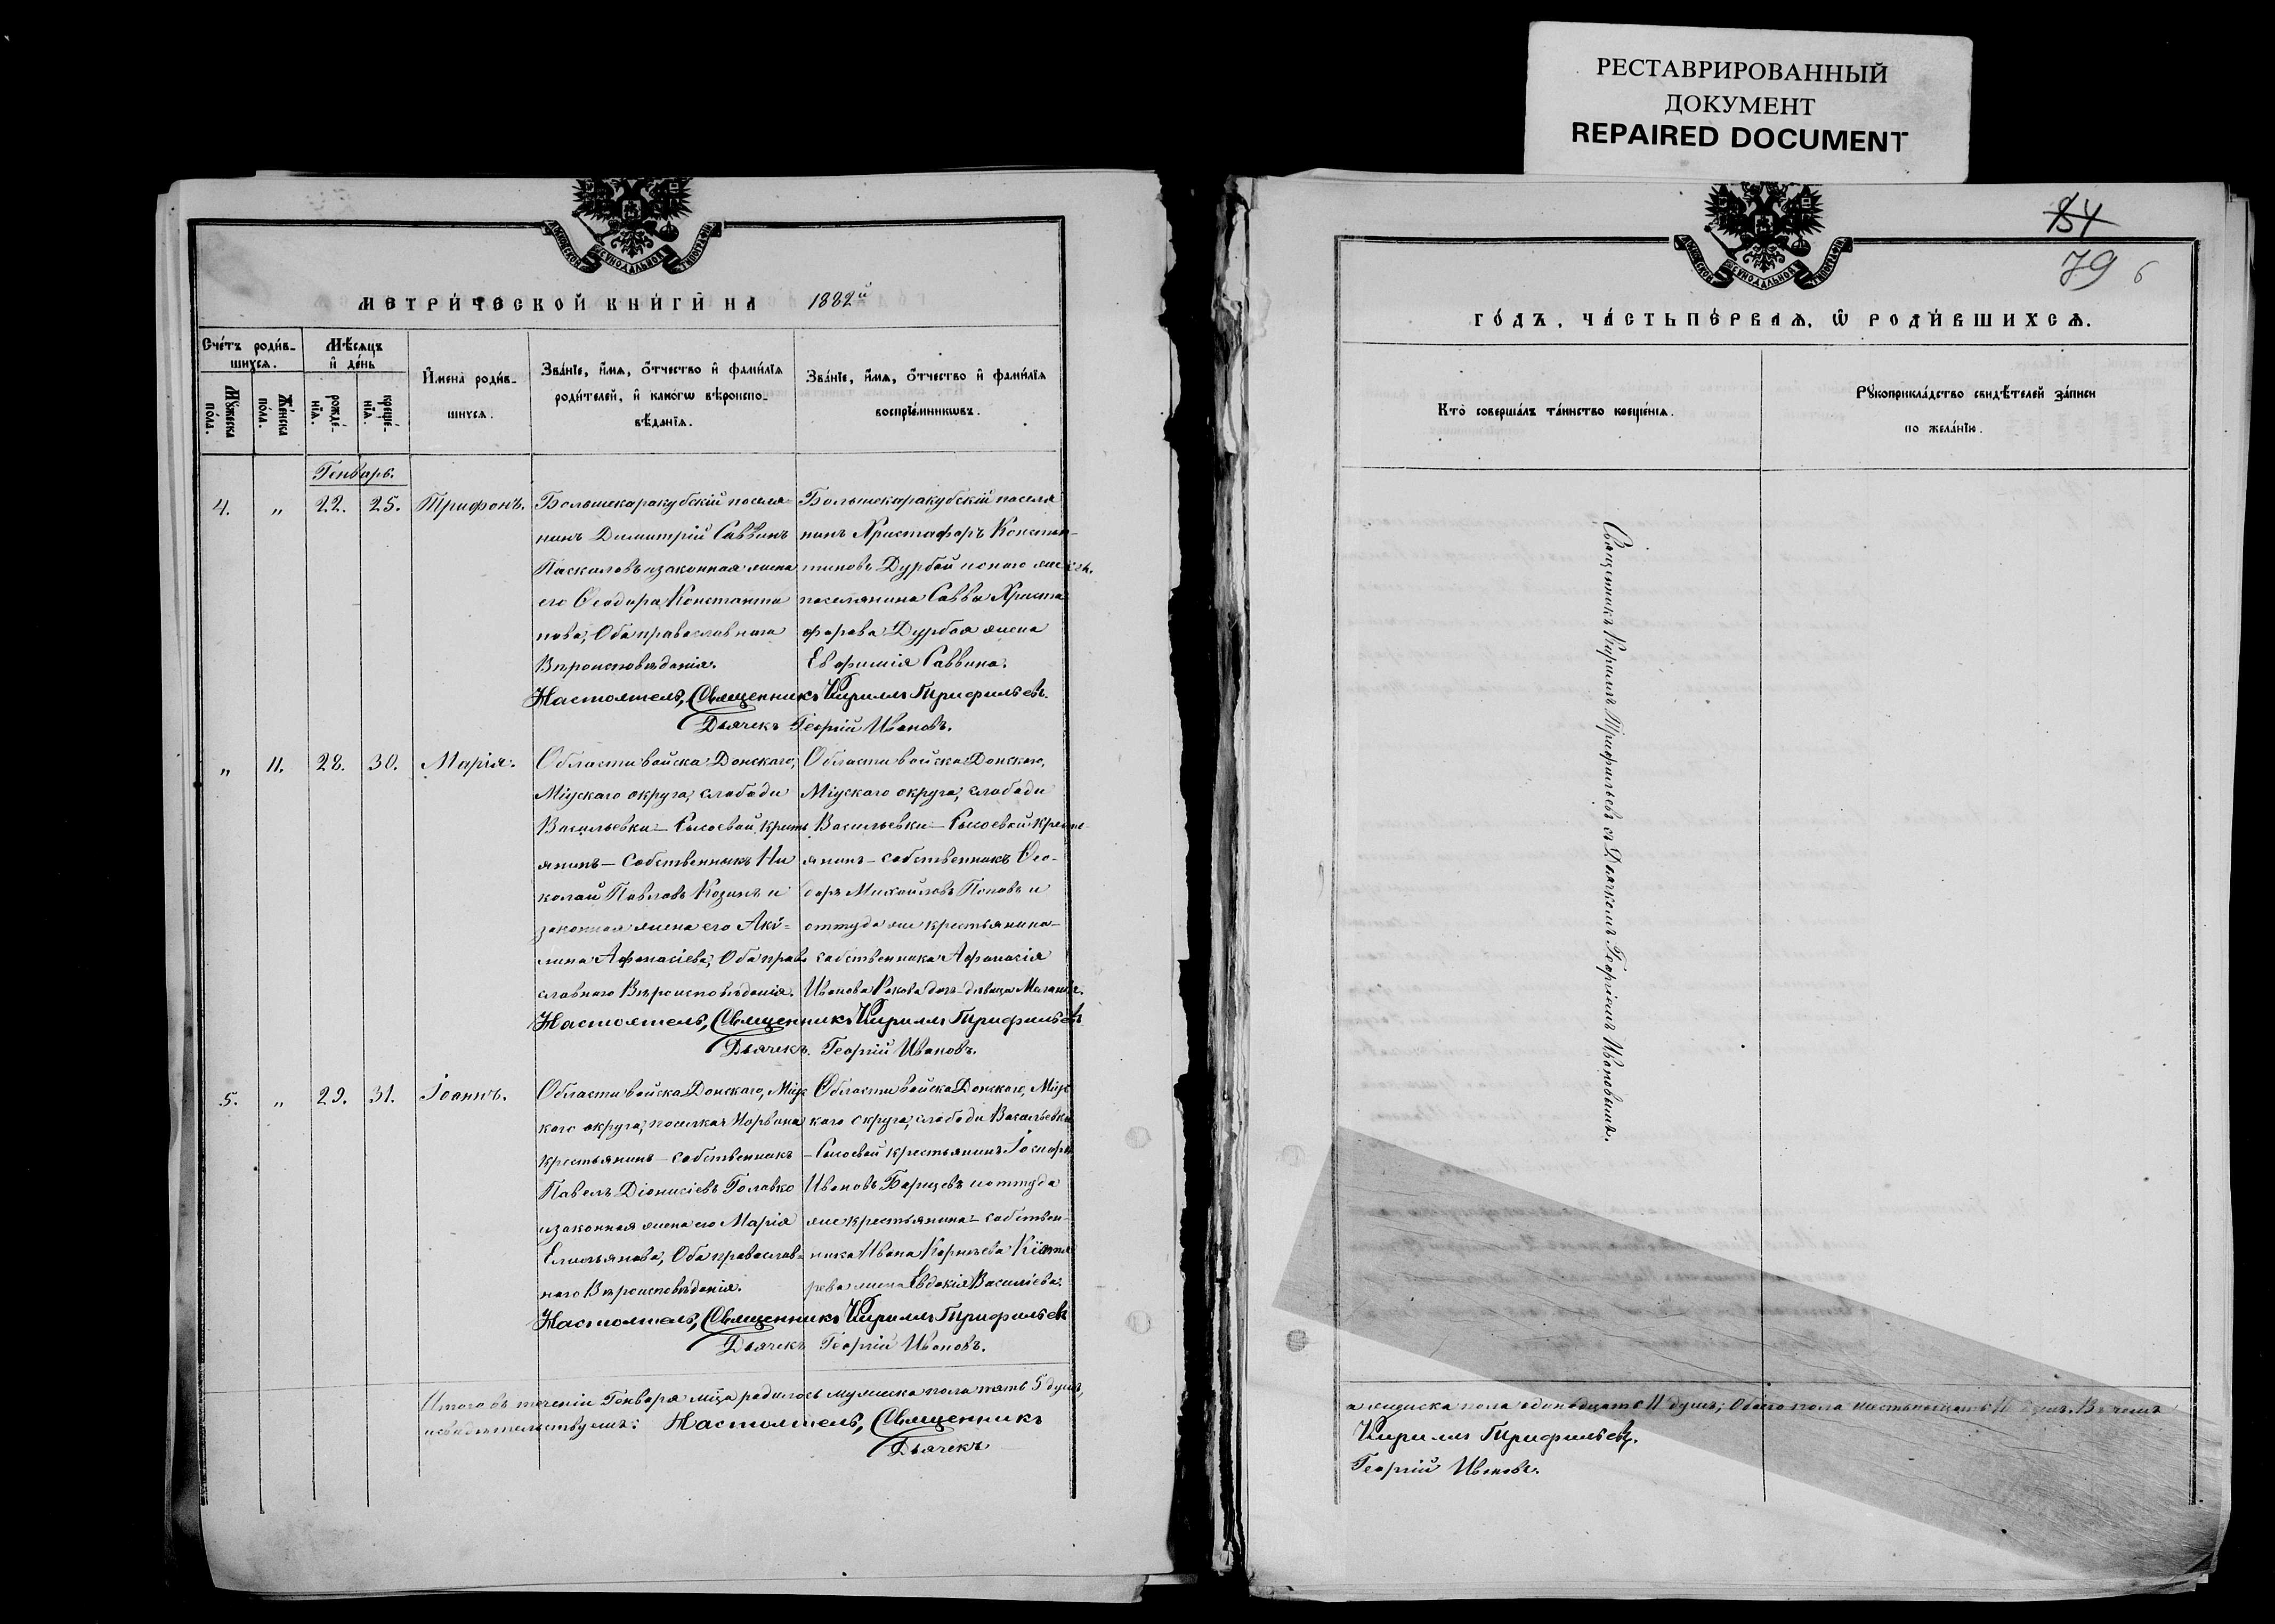 РЕСТАВРИРОВАННЫЙ
ДОКУМЕНТ
REPAIRED DOCUMENT
МОСКОВСКОЙ СѴНОДАЛЬНОЙ ТИПОГРАФІИ
МЕТРИ́ЧЕСКОЙ КНИ́ГИ НА 1882й
Сче́тъ роди́в-
шихсѧ.
Мѣ́сѧцъ
и҆ де́нь
Мꙋ́жеска
по́ла.
Же́нска
по́ла.
рожде́-
нїѧ.
креще́-
нїѧ.
И҆мена̀ роди́в-
шихсѧ.
Зва́нїе, и҆́мѧ, ѻ҆́тчество и҆ фами́лїѧ
роди́телей, и҆ како́гѡ вѣроиспо-
вѣ́данїѧ.
Зва́нїе, и҆́мѧ, ѻ҆́тчество и҆ фами́лїѧ
воспрїе́мникѡвъ.
Генварь.
4. „ 22. 25. Трифонъ.
Большекаракубскій поселя-
нинъ Димитрій Саввинъ
Паскаловъ и законная жена
его Ѳеодора Константи
нова, Оба православнаго
Вѣроисповѣданія.
Большекаракубскій поселя
нинъ Христофоръ Констан-
тиновъ Дурбай и оного же сел.
поселянина Савва Христо
форова Дурбая жена
Евфимія Саввина.
Настоятель, Священникъ Кириллъ Трифильевъ.
Дьячекъ Георгій Ивановъ.
„ 11. 28. 30. Марія.
Области войска Донскаго,
Міускаго округа, слободи
Васильевки – Сысоевой, кресть
янинъ – Собственникъ Ни
колай Павловъ Козинъ и
законная жена его Аки-
лина Афанасіева, Оба право
славнаго Вѣроисповѣданія.
Области войска Донскаго,
Міускаго округа, слободи
Васильевки – Сысоевой кресть-
янинъ – собственникъ Ѳео-
доръ Михайловъ Поповъ и
оттуда же крестьянина –
собственника Афанасія
Иванова Рокова дочь – дѣвица Меланія.
Настоятель, Священникъ Кириллъ Трифильевъ
Дьячекъ. Георгій Ивановъ.
5. „ 29. 31. Іоаннъ.
Области войска Донскаго, Міус
каго округа, поселка
крестьянинъ – собственникъ
Павелъ Діонисіевъ Головко
и законная жена его Марія
Емельянова, Оба православ-
наго Вѣроисповѣданія.
Области войска Донскаго, Міус
каго округа, слободи Васильевки
– Сысоевой крестьянинъ
Ивановъ Борщевъ и оттуда
же крестьянина – собствен-
ника Ивана Корнѣева
рева жена Евдокія Василіева.
Настоятель, Священникъ Кириллъ Трифильевъ
Дьячекъ Георгій Ивановъ.
Итого въ теченіи Генваря мѣца родилось мужеска пола пять 5 душъ,
и свидѣтельствуемъ: Настоятель, Священникъ
Дьячекъ
МОСКОВСКОЙ СѴНОДАЛЬНОЙ ТИПОГРАФІИ
84
79 6
ГО́ДЪ, ЧА́СТЬ ПЕ́РВАѦ, Ѡ҆ РОДИ́ВШИХСѦ.
Кто̀ соверша́лъ та́инство креще́нїѧ.
Рꙋкоприкла́дство свидѣ́телей за́писи
по жела́нїю.
Священникъ Кириллъ Трифильевъ съ Дьячкомъ Георгіемъ Ивановымъ.
а женска пола одинадцать 11 душъ, Обоего пола шестьнадцать 16 душъ. Въ чемъ
Кириллъ Трифильевъ.
Георгій Ивановъ.